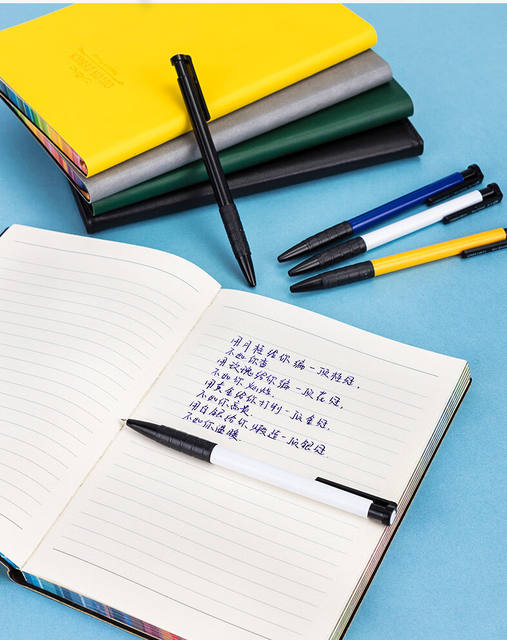 用月桂给你编一顶桂冠,
不如你香
用玫瑰给你编一顶花冠,
不如你
用黄金给你打制一顶金冠
不如你高贵
用白银给你 一顶银冠
不如你温暖